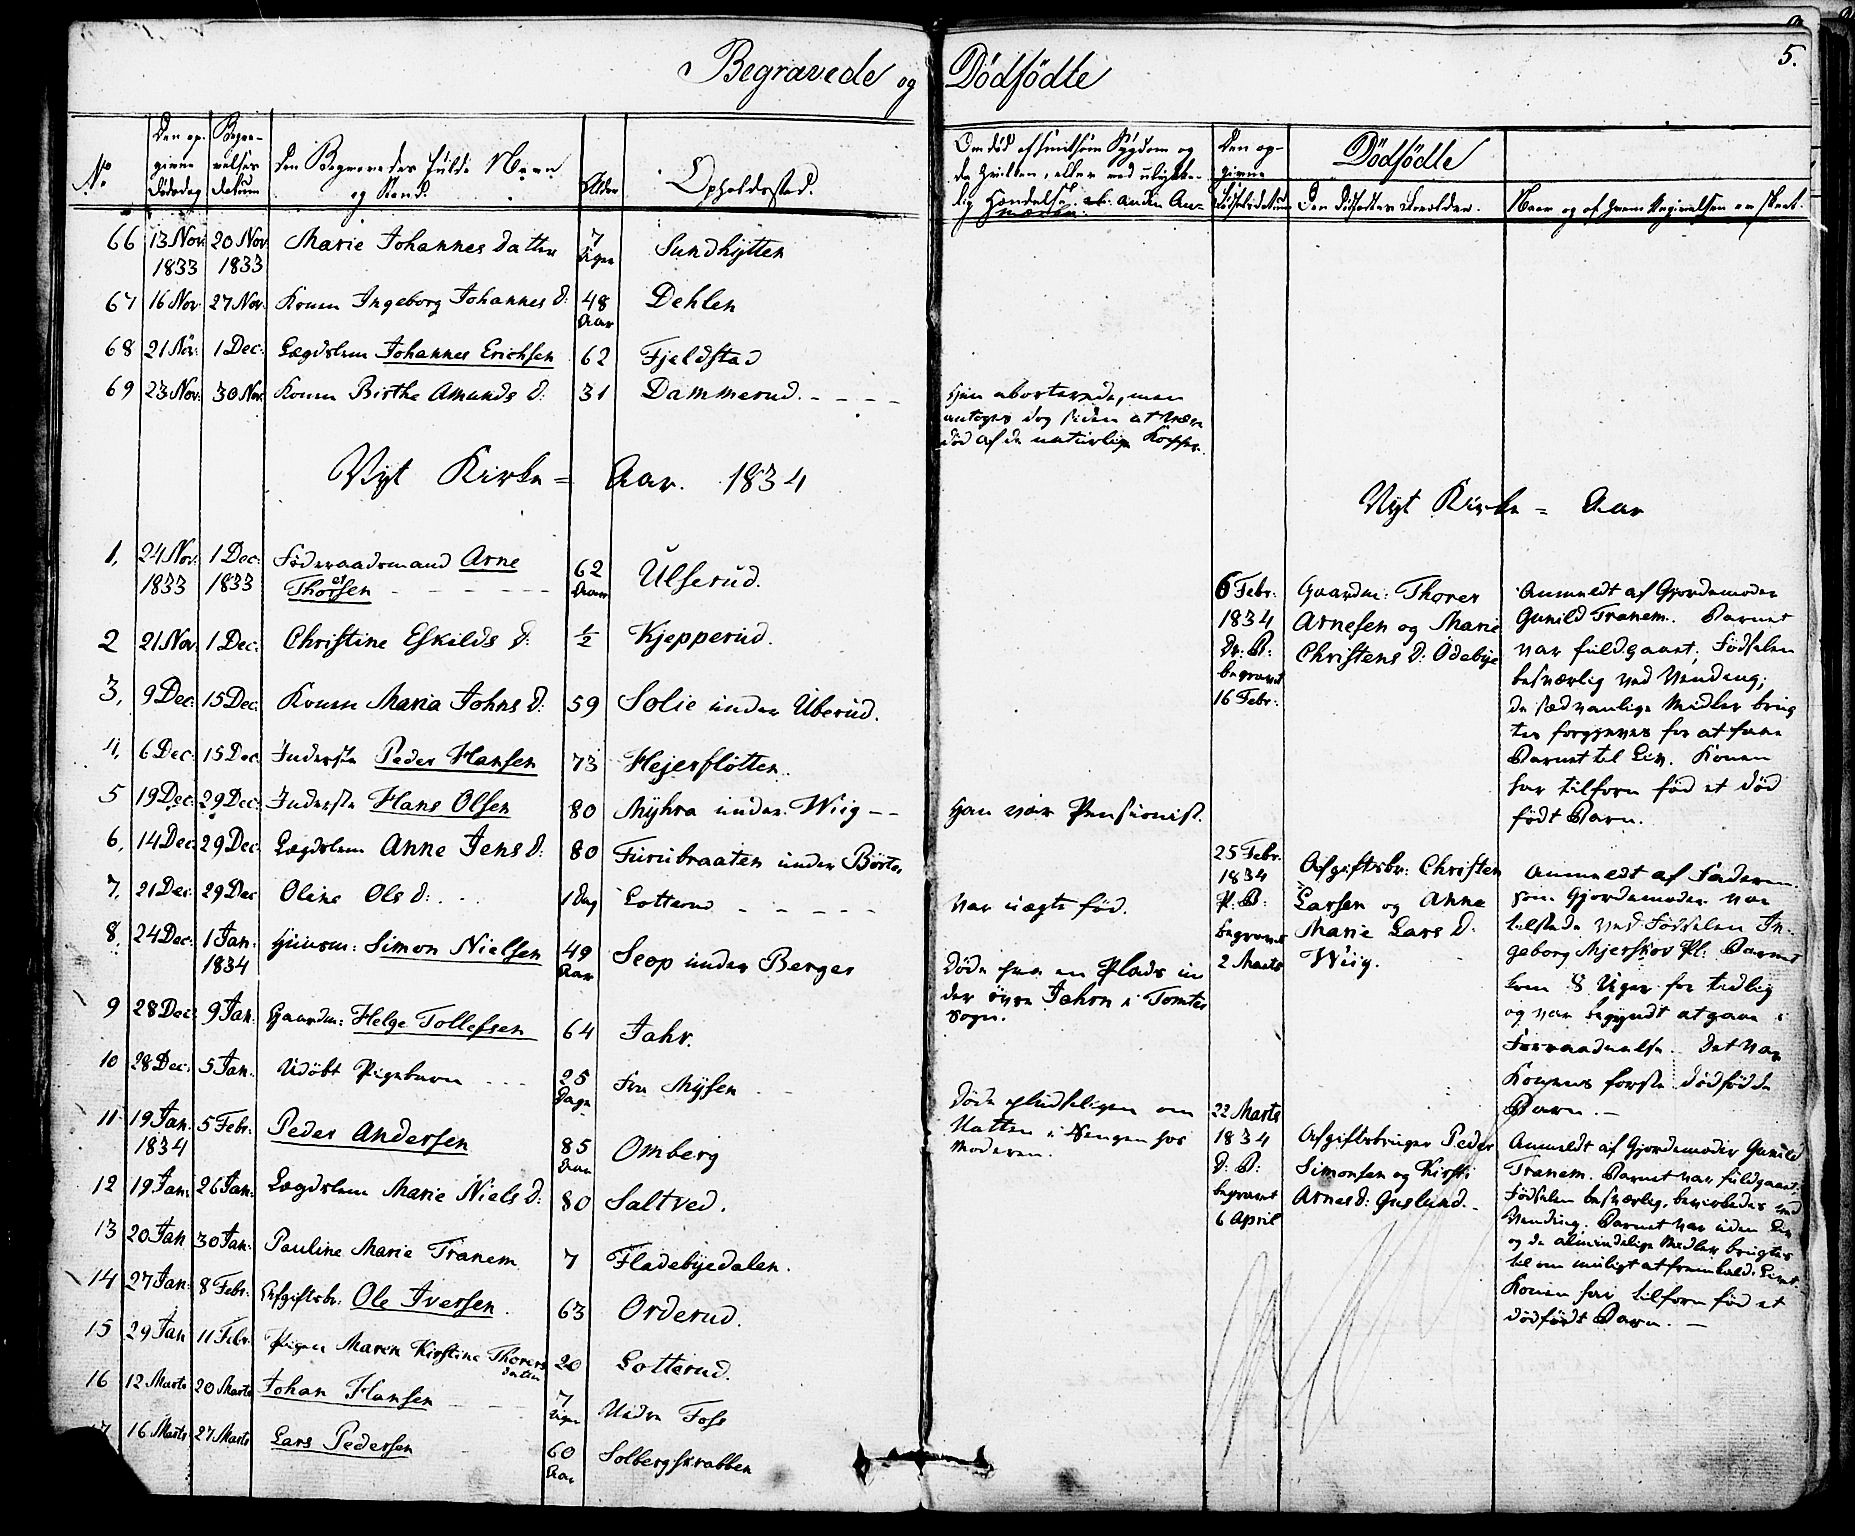 5.
Begravede og Dödfödte
No
Den op-
givne
Dödsdag
Begra-
velses
Datum
Den Begravedes fulde Navn
og Stand.
Alder
Opholdssted.
Om död af smitsom Sygdom og
da hvilken, eller ved ulykke-
lig Hændelse
Den op-
givne
Födselsdatum
Dödfödte
Den Dödfödtes Forældre.
Naar og af hvem Angivelsen er skeet.
66 13 Nov. 1833 20 Nov 1833 Marie Johannesdatter 7 Uger Sundhytten
67 16 Nov 27 Nov. Konen Ingeborg Johannes d: 48 Aar Dehlen
68 21 Nov: 1 Dec: Lægdslem Johannes Erichsen 62 Fjeldstad
69 23 Nov. 30 Nov. Konen Birthe Amunds d: 31 Dammerud.
Hun aborterede, men
antoges dog siden at være
död af de naturlige Kopper.
Nyt Kirke= Aar. 1834
Nyt Kirke= Aar
1, 24 Nov. 1833 1 Dec: 1833 Föderaadsmand Arne
Thorsen 62 Aar Ulserud.
2 21 Nov. 1 Dec: Christine Eskilds d: 1/2 Kjepperud.
3, 9 Dec: 15 Dec: Konen Maria Johns d: 59 Solie under Uberud.
4, 6 Dec: 15 Dec Inderste Peder Hansen 73 Hejerflötten.
5 19 Dec: 29 Dec: Inderste Hans Olsen 80 Myhra under Wiig
Han var Pensionist.
6, 14 Dec: 29 Dec: Lægdslem Anne Jens d: 80 Furubraaten under Börte,
7, 21 Dec: 29 Dec Oline Ols d: 1 Dag Lotterud
Var uægte föd.
8, 24 Dec: 1 Jan: 1834 Huusm: Simon Nielsen 49 Aar Seop under Berger
Döde paa en Plads un
der övre Jahrn i Tomter
Sogn.
9 28 Dec: 9 Jan: Gaardm: Helge Tollefsen 64 Jahr.
10 28 Dec: 5 Jan. Udöbt Pigebarn 25 Dage Fra Mysen
Döde pludseligen om
Natten i Sengen hos
Moderen.
11 19 Jan. 1834 5 Febr: Peder Andersen 85 Aar Omberg
12 19 Jan: 26 Jan: Lægdslem Marie Niels d: 80 Saltved.
13 20 Jan 30 Jan: Pauline Marie Tranem 7 Fladebyedalen.
14 27 Jan: 8 Febr: Afgiftsbr: Ole Iversen. 63 Orderud.
15 29 Jan 11 Febr. Pigen Maren Kirstine Thorers
datter 20 Lotterud.
16 12 Marts 20 Marts Johan Hansen 7 Uger Nedre Foss
16 Marts 27 Marts Lars Pedersen 60 Aar Solbergskrabben
6 Febr:
1834
Dr: B:
begravet
16 Febr:
Gaardm: Thorer
Arnesen og Marie
Christens d: Ödebye
Anmeldt af Gjordemoder
Gunild Tranem. Barnet
var fuldgaaet; Födselen
besværlig ved Vending;
de sædvanlige Midler brug
tes forgjeves for at faae
Barnet til Liv. Konen
har tilforn föd et död
födt Barn.
25 Febr.
1834
P: B:
begravet
2 Marts
Afgiftsbr: Christen
Larsen og Anne
Marie Lars d:
Wiig.
Anmeldt af Faderen.
som Gjordemoder var
tilstede ved Födselen In-
geborg Mjerskov Pl: Barnet
kom 8 Uger for tidlig
og var begyndt at gaae i
Forraadnelse. Det var
Konens förste dödfödte
Barn. —
22 Marts
1834
D: B:
begravet
6 April
Afgiftsbruger Peder
Simonsen og Kirsti
Arnes d: Guslund.
Anmeldt af Gjordemoder Gunild
Tranem. Barnet var fuldgaaet,
Födselen besværlig, bevirkedes ved
Vending. Barnet var uden Liv
og de almindelige Midler brugtes
til om muligt at fremkalde Livet.
Konen har tilforn föd et
dödfödt Barn. —